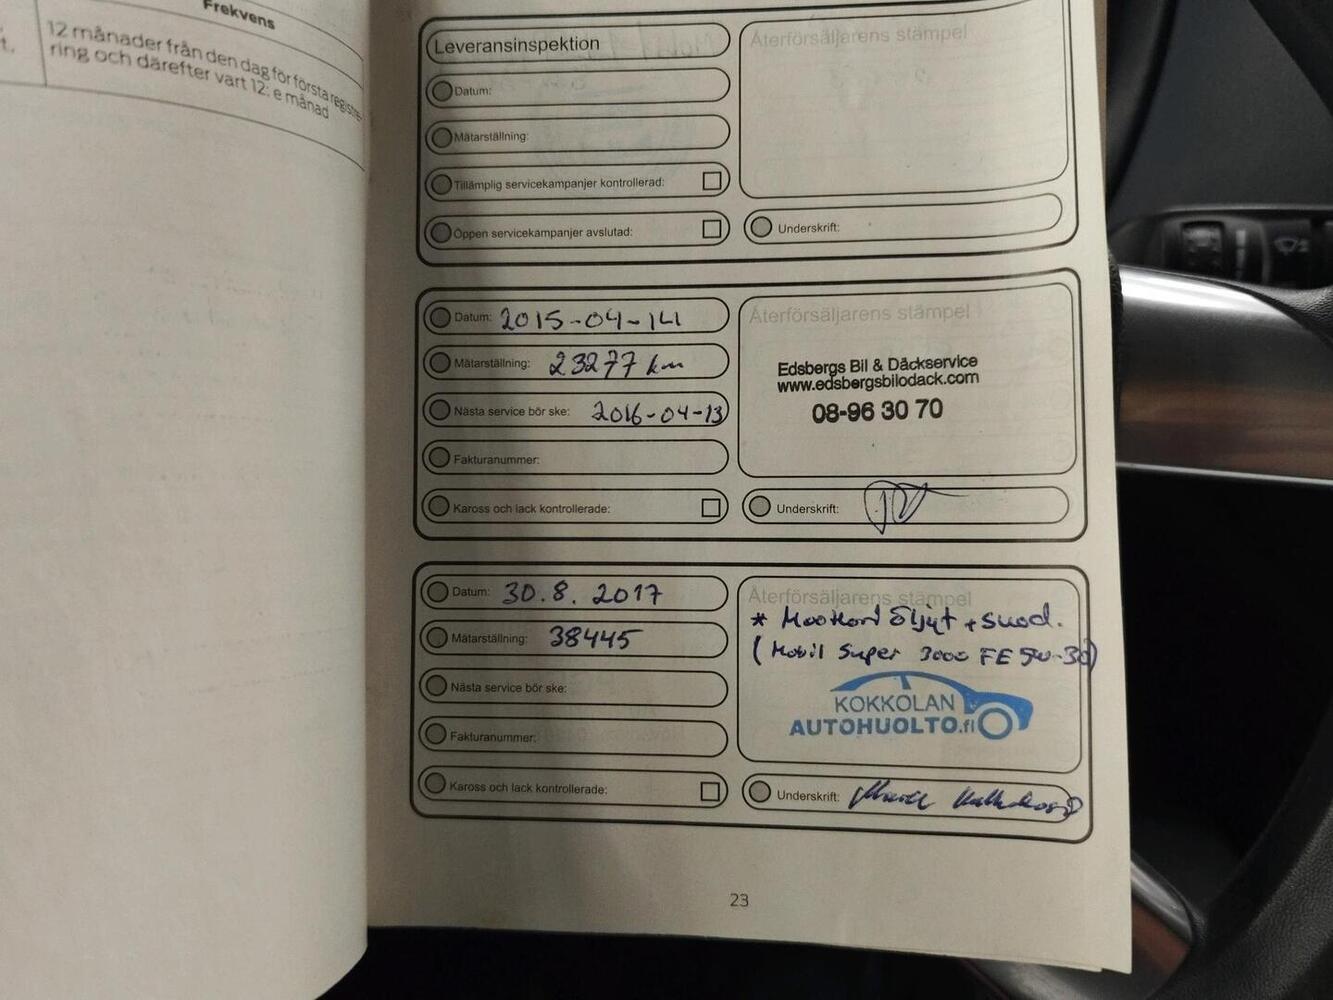 Frekvens
12 månader från den dag för första registre-
ring och därefter vart 12: e månad
t.
Leveransinspektion
Datum:
Mätarställning:
Tillämplig servicekampanjer kontrollerad:
Öppen servicekampanjer avslutad:
Återförsäljarens stämpel
Underskrift:
Datum: 2015-04-14
Mätarställning: 23277 km
Nästa service bör ske: 2016-04-13
Fakturanummer:
Kaross och lack kontrollerade:
Återförsäljarens stämpel
Edsbergs Bil & Däckservice
www.edsbergsbilodack.com
08-96 30 70
Underskrift:
Datum: 30.8. 2017
Mätarställning: 38445
Nästa service bör ske:
Fakturanummer:
Kaross och lack kontrollerade:
Återförsäljarens stämpel
* Moottori öljyt + suod.
(Mobil Super 3000 FE 5W-30)
KOKKOLAN
AUTOHUOLTO.fi
Underskrift:
23